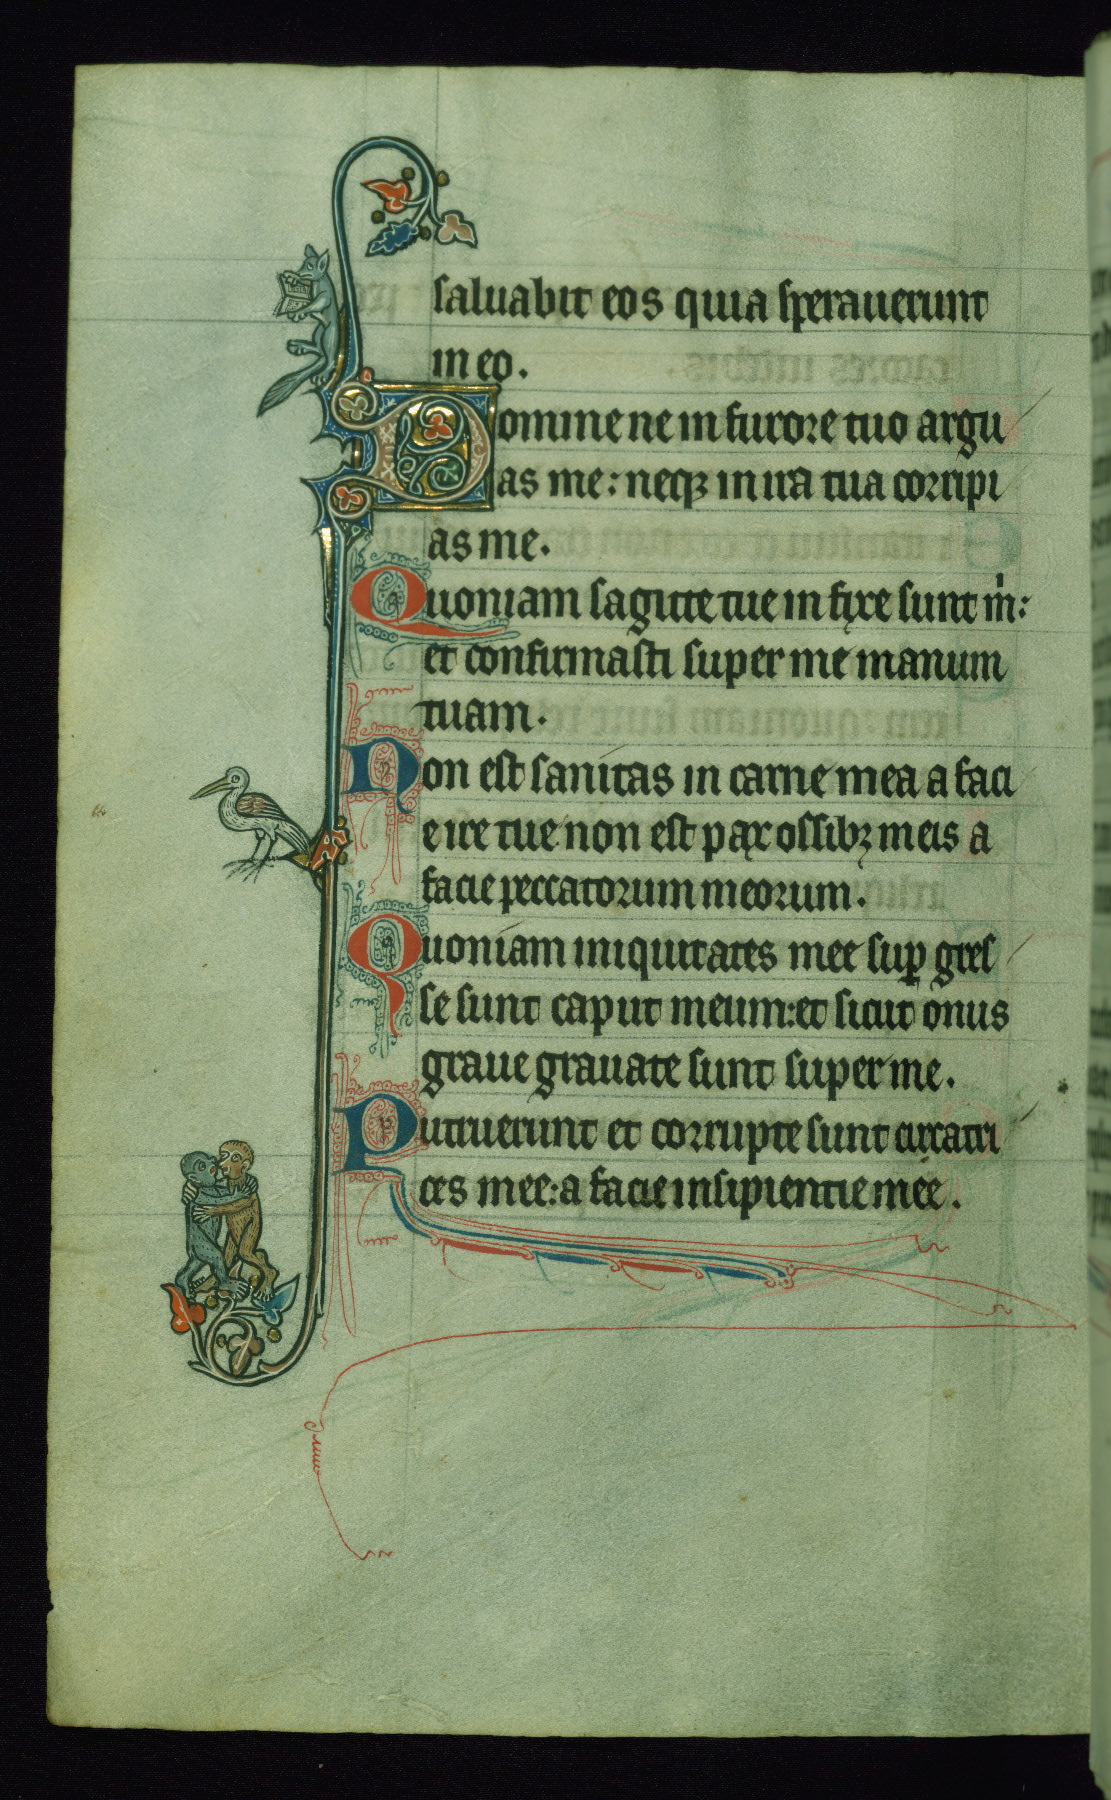 saluabit eos quia sperauerunt
in eo.
Domine ne in furore tuo argu
as me: neqꝫ in ira tua corripi
as me.
Quoniam sagitte tue in fixe sunt m̄:
et confirmasti super me manum
tuam.
Non est sanitas in carne mea a faci
e ire tue non est pax ossibꝫ meis a
facie peccatorum meorum.
Quoniam iniquitates mee suꝑ gres
se sunt caput meum: et sicut onus
graue grauate sunt super me.
Putruerunt et corrupte sunt cicatri
ces mee: a facie insipientie mee.